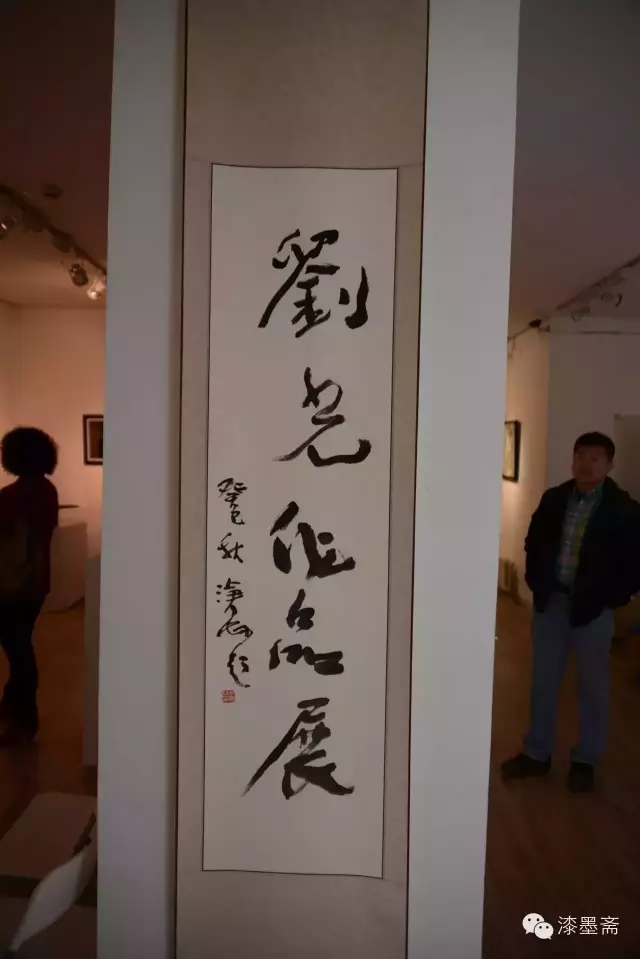 劉光作品展
癸巳秋
題
漆墨斋